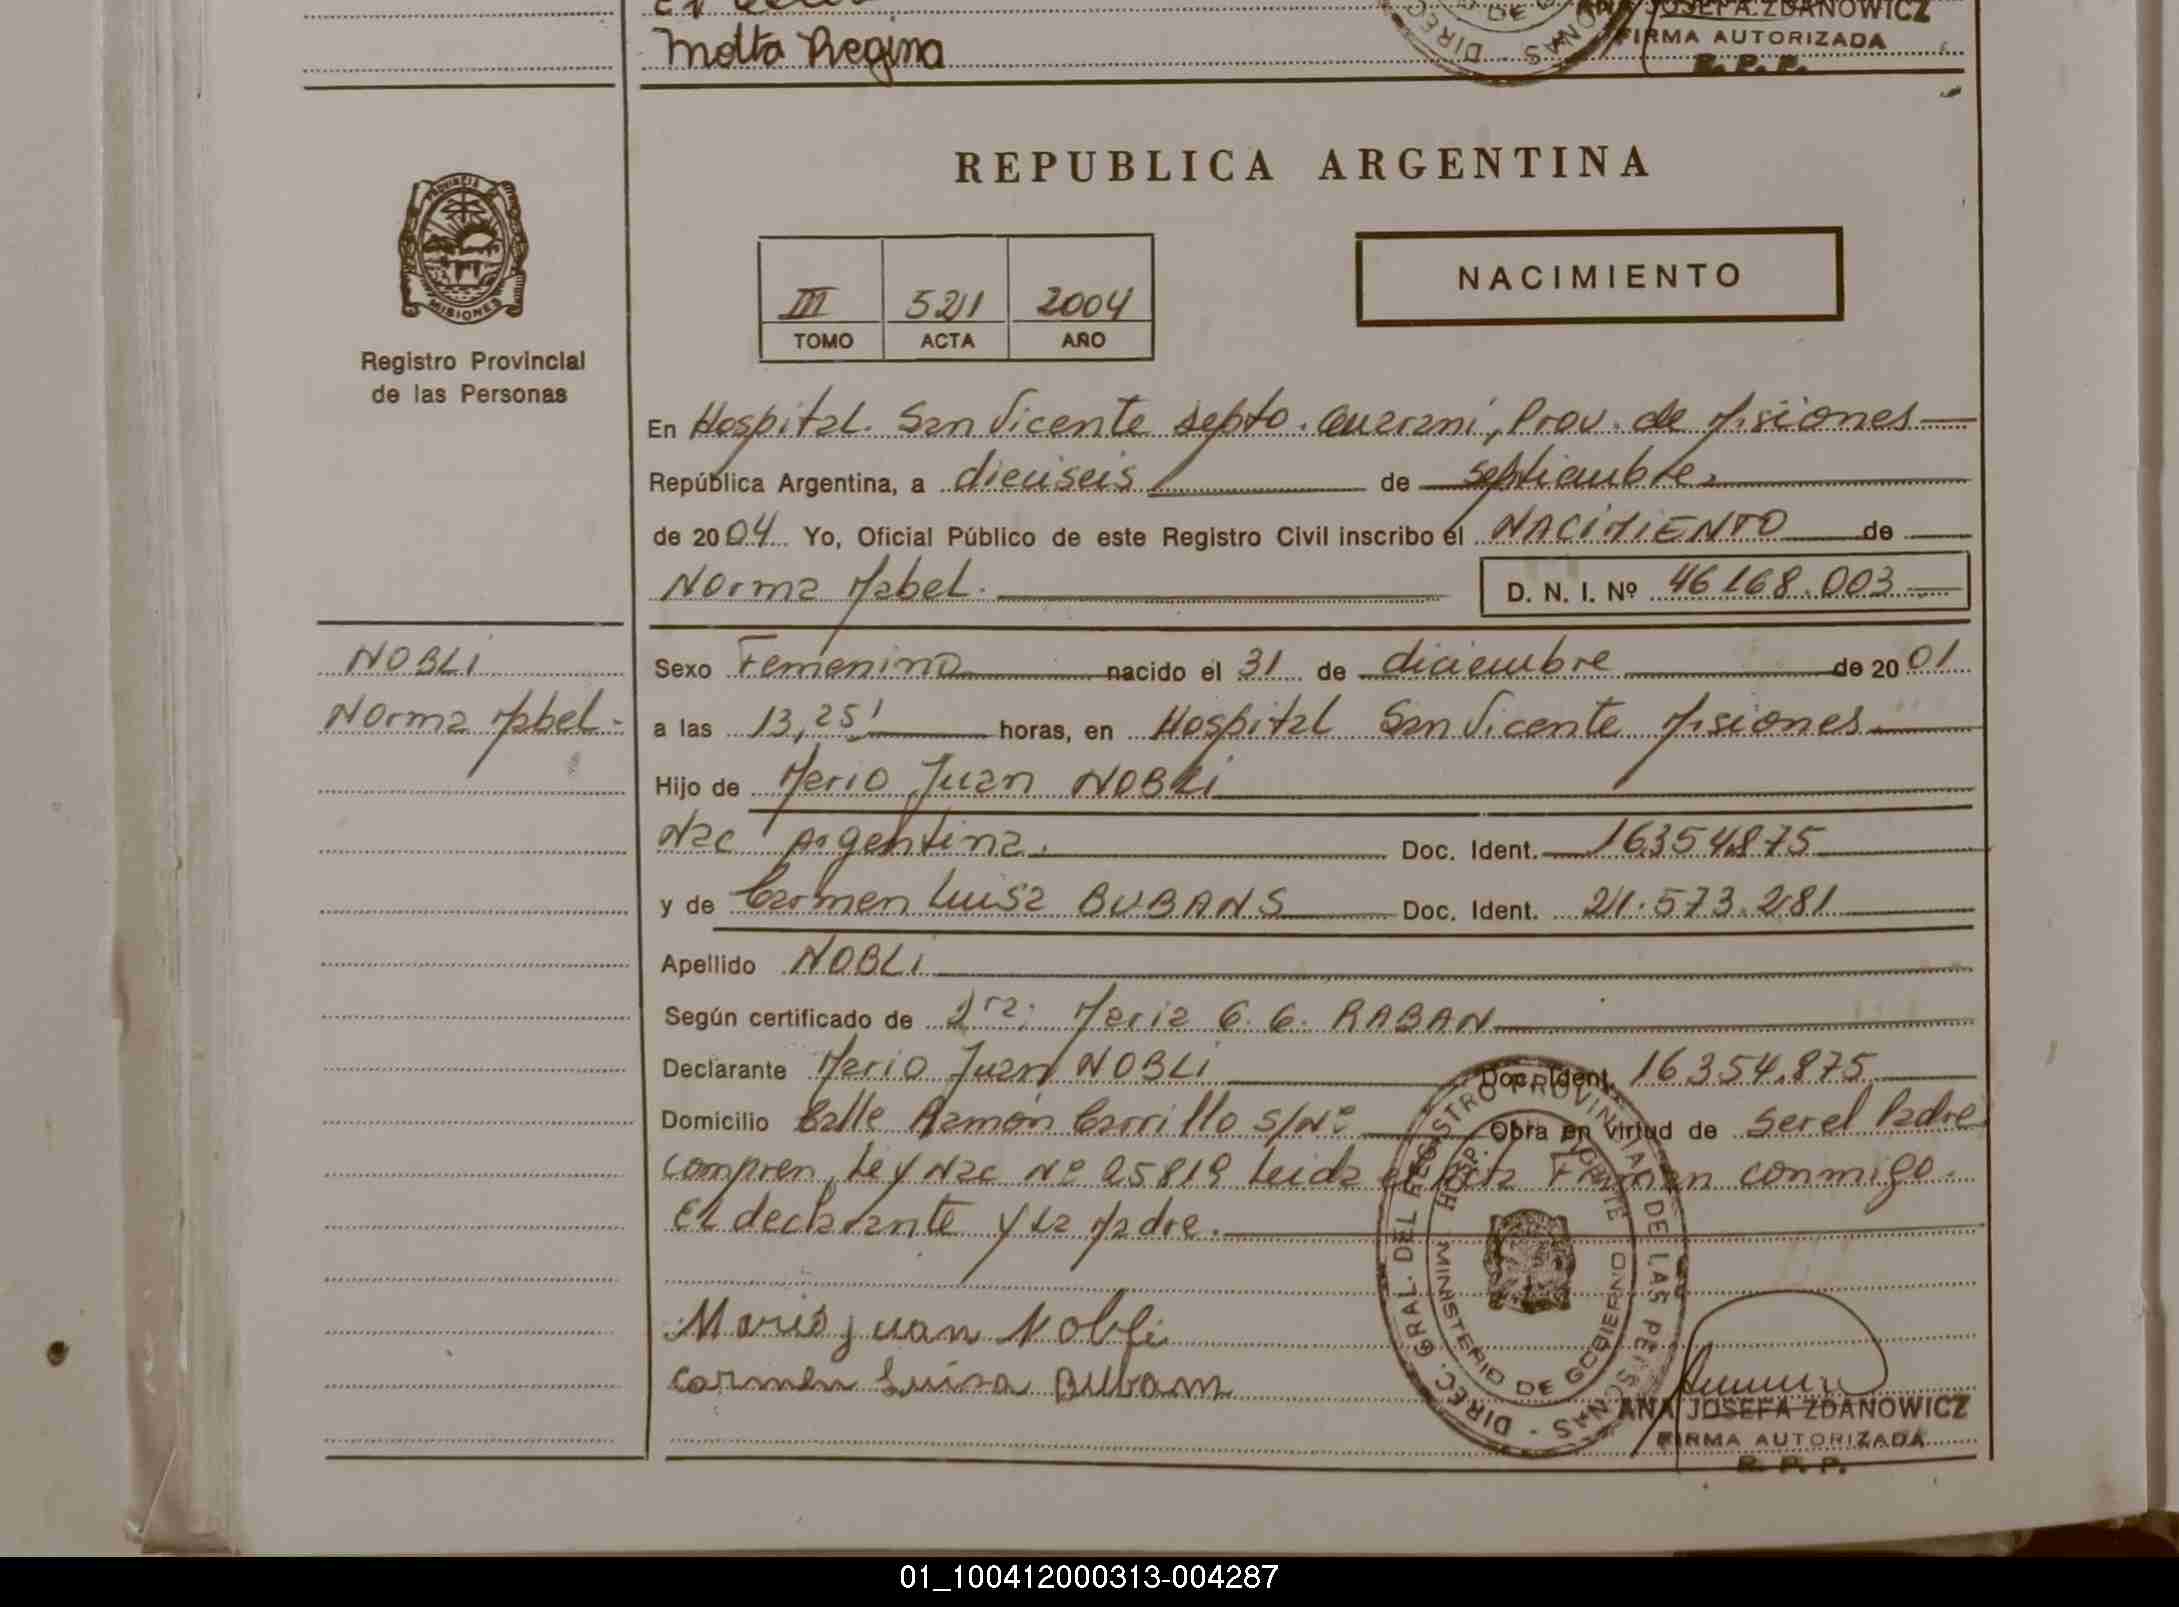 Motta Regina
ANA JOSEFA ZDANOWICZ
FIRMA AUTORIZADA
R. P. P.
PROVINCIA DE
MISIONES
Registro Provincial
de las Personas
REPUBLICA ARGENTINA
III 521 2004
TOMO ACTA AÑO
NACIMIENTO
En Hospital. San Vicente Depto. Guarani, Prov. de Misiones
República Argentina, a dieciseis de septiembre
de 2004 Yo, Oficial Público de este Registro Civil inscribo el NACIMIENTO de
Norma Mabel. D. N. I. Nº 46168.003
NOBLI
Norma Mabel.-
Sexo Femenino nacido el 31 de diciembre de 2001
a las 13,25' horas, en Hospital San Vicente Misiones
Hijo de Mario Juan NOBLI
Nac Argentina. Doc. Ident. 16354.875
y de Carmen Luisa BUBANS Doc. Ident. 21.573.281
Apellido NOBLI
Según certificado de Dra: Maria G. G. RABAN
Declarante Mario Juan NOBLI Doc. Ident. 16354.875
Domicilio Calle Ramón Carrillo S/Nº Obra en virtud de ser el Padre
compren. Ley Nac Nº 25819 Leida el Acta Firman conmigo.
El declarante y la Madre.
Mario Juan Nobli
Carmen Luisa Bubans
DIREC. GRAL. DEL REGISTRO PROVINCIAL DE LAS PERSONAS -
MINISTERIO DE GOBIERNO
ANA JOSEFA ZDANOWICZ
FIRMA AUTORIZADA
R. P. P.
01_100412000313-004287